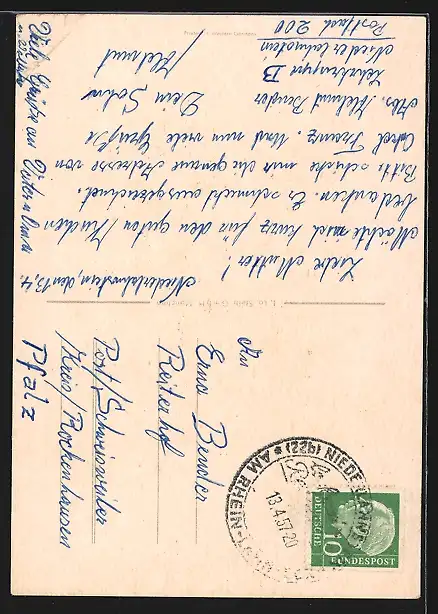 Niederlahnstein, den 13.4.
Liebe Mutter!
Möchte mich kurz für den guten Kuchen
bedanken. Er schmeckt ausgezeichnet.
Bitte schicke mir die genaue Adresse von
Onkel Franz. Und nun viele Grüße
Dein Sohn
Helmut
Abs. Helmut Bender
Lehrkruppe B
Niederlahnstein
Postfach 200
Viele Grüße an Vater u. Oma
An
Erna Bender
Reiterhof
Post/Schweisweiler
Kreis/Rockenhausen
Pfalz
(22b) NIEDERLAHNSTEIN
AM RHEIN
13.4.57-20
DEUTSCHE
BUNDESPOST
10